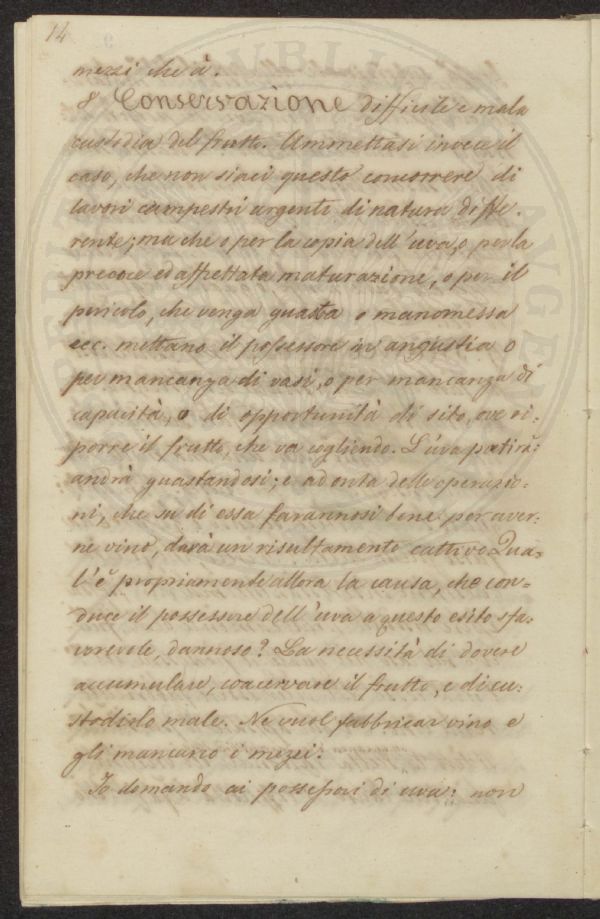 14
mezzi che à.
8 Conservazione difficile e mala
custodia del frutto. Ammettasi invece il
caso, che non siavi questo concorrere di
lavori campestri urgenti di natura diffe-
rente; ma che o per la copia dell'uva, o per la
precoce ed affrettata maturazione, o per il
pericolo, che venga guasta o manomessa
ecc. mettano il possessore in angustia o
per mancanza di vasi, o per mancanza di
capacità, o di opportunità di sito, ove ri-
porre il frutto, che va cogliendo. L'uva patirà:
andrà guastandosi; e ad onta delle operazio=
ni, che su di essa farannosi bene per aver=
ne vino, darà un risultamento cattivo. Qua=
l'è propriamente allora la causa, che con=
duce il possessore dell'uva a questo esito sfa=
vorevole, dannoso? La necessità di dovere
accumulare, coacervare il frutto, e di cu=
stodirlo male. Ne vuol fabbricar vino e
gli mancano i mezzi.
Io domando ai possessori di uva: non